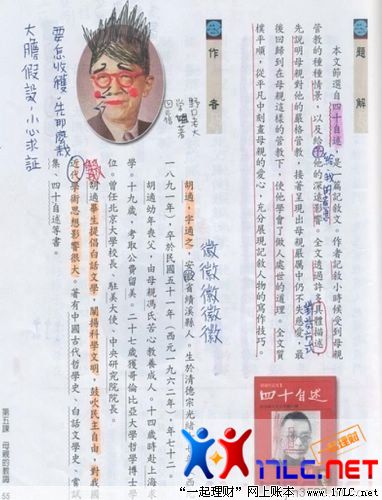 題解
本文節選自四十自述,是一篇記敘文。作者記敘小時候受到母親
管教的種種情景,以及給他的深遠影響。全文透過許多具體描述,
先說明母親對他的嚴格管教,接著呈現出母親嚴厲中仍不失慈愛,最
後回歸到在母親這樣的管教下,使他學會了做人處世的道理。全文質
樸平順,從平凡中刻畫母親的愛心,充分展現記敘人物的寫作技巧。
四十自述
作者
徽徽徽徽徽
胡適,字適之,安徽省績溪縣人。生於清德宗光緒
一八九一年),卒於民國五十一年(西元一九六二年),年七十二。
胡適幼年喪父,由母親馮氏苦心教養成人。十四歲時赴上海求
學。十九歲,考取公費留美。二十七歲獲哥倫比亞大學哲學博士學
位。曾任北京大學校長、駐美大使、中央研究院院長。
胡適畢生提倡白話文學,闡揚科學文明,鼓吹民主自由,對我國
近代學術思想影響很大。著有中國古代哲學史、白話文學史、嘗試
集、四十自述等書。
要怎收穫,先那麼栽
大膽假設,小心求証
第五課 母親的教誨
55
一起理财
17LC.NET
“一起理财”网上账本:17lc.net